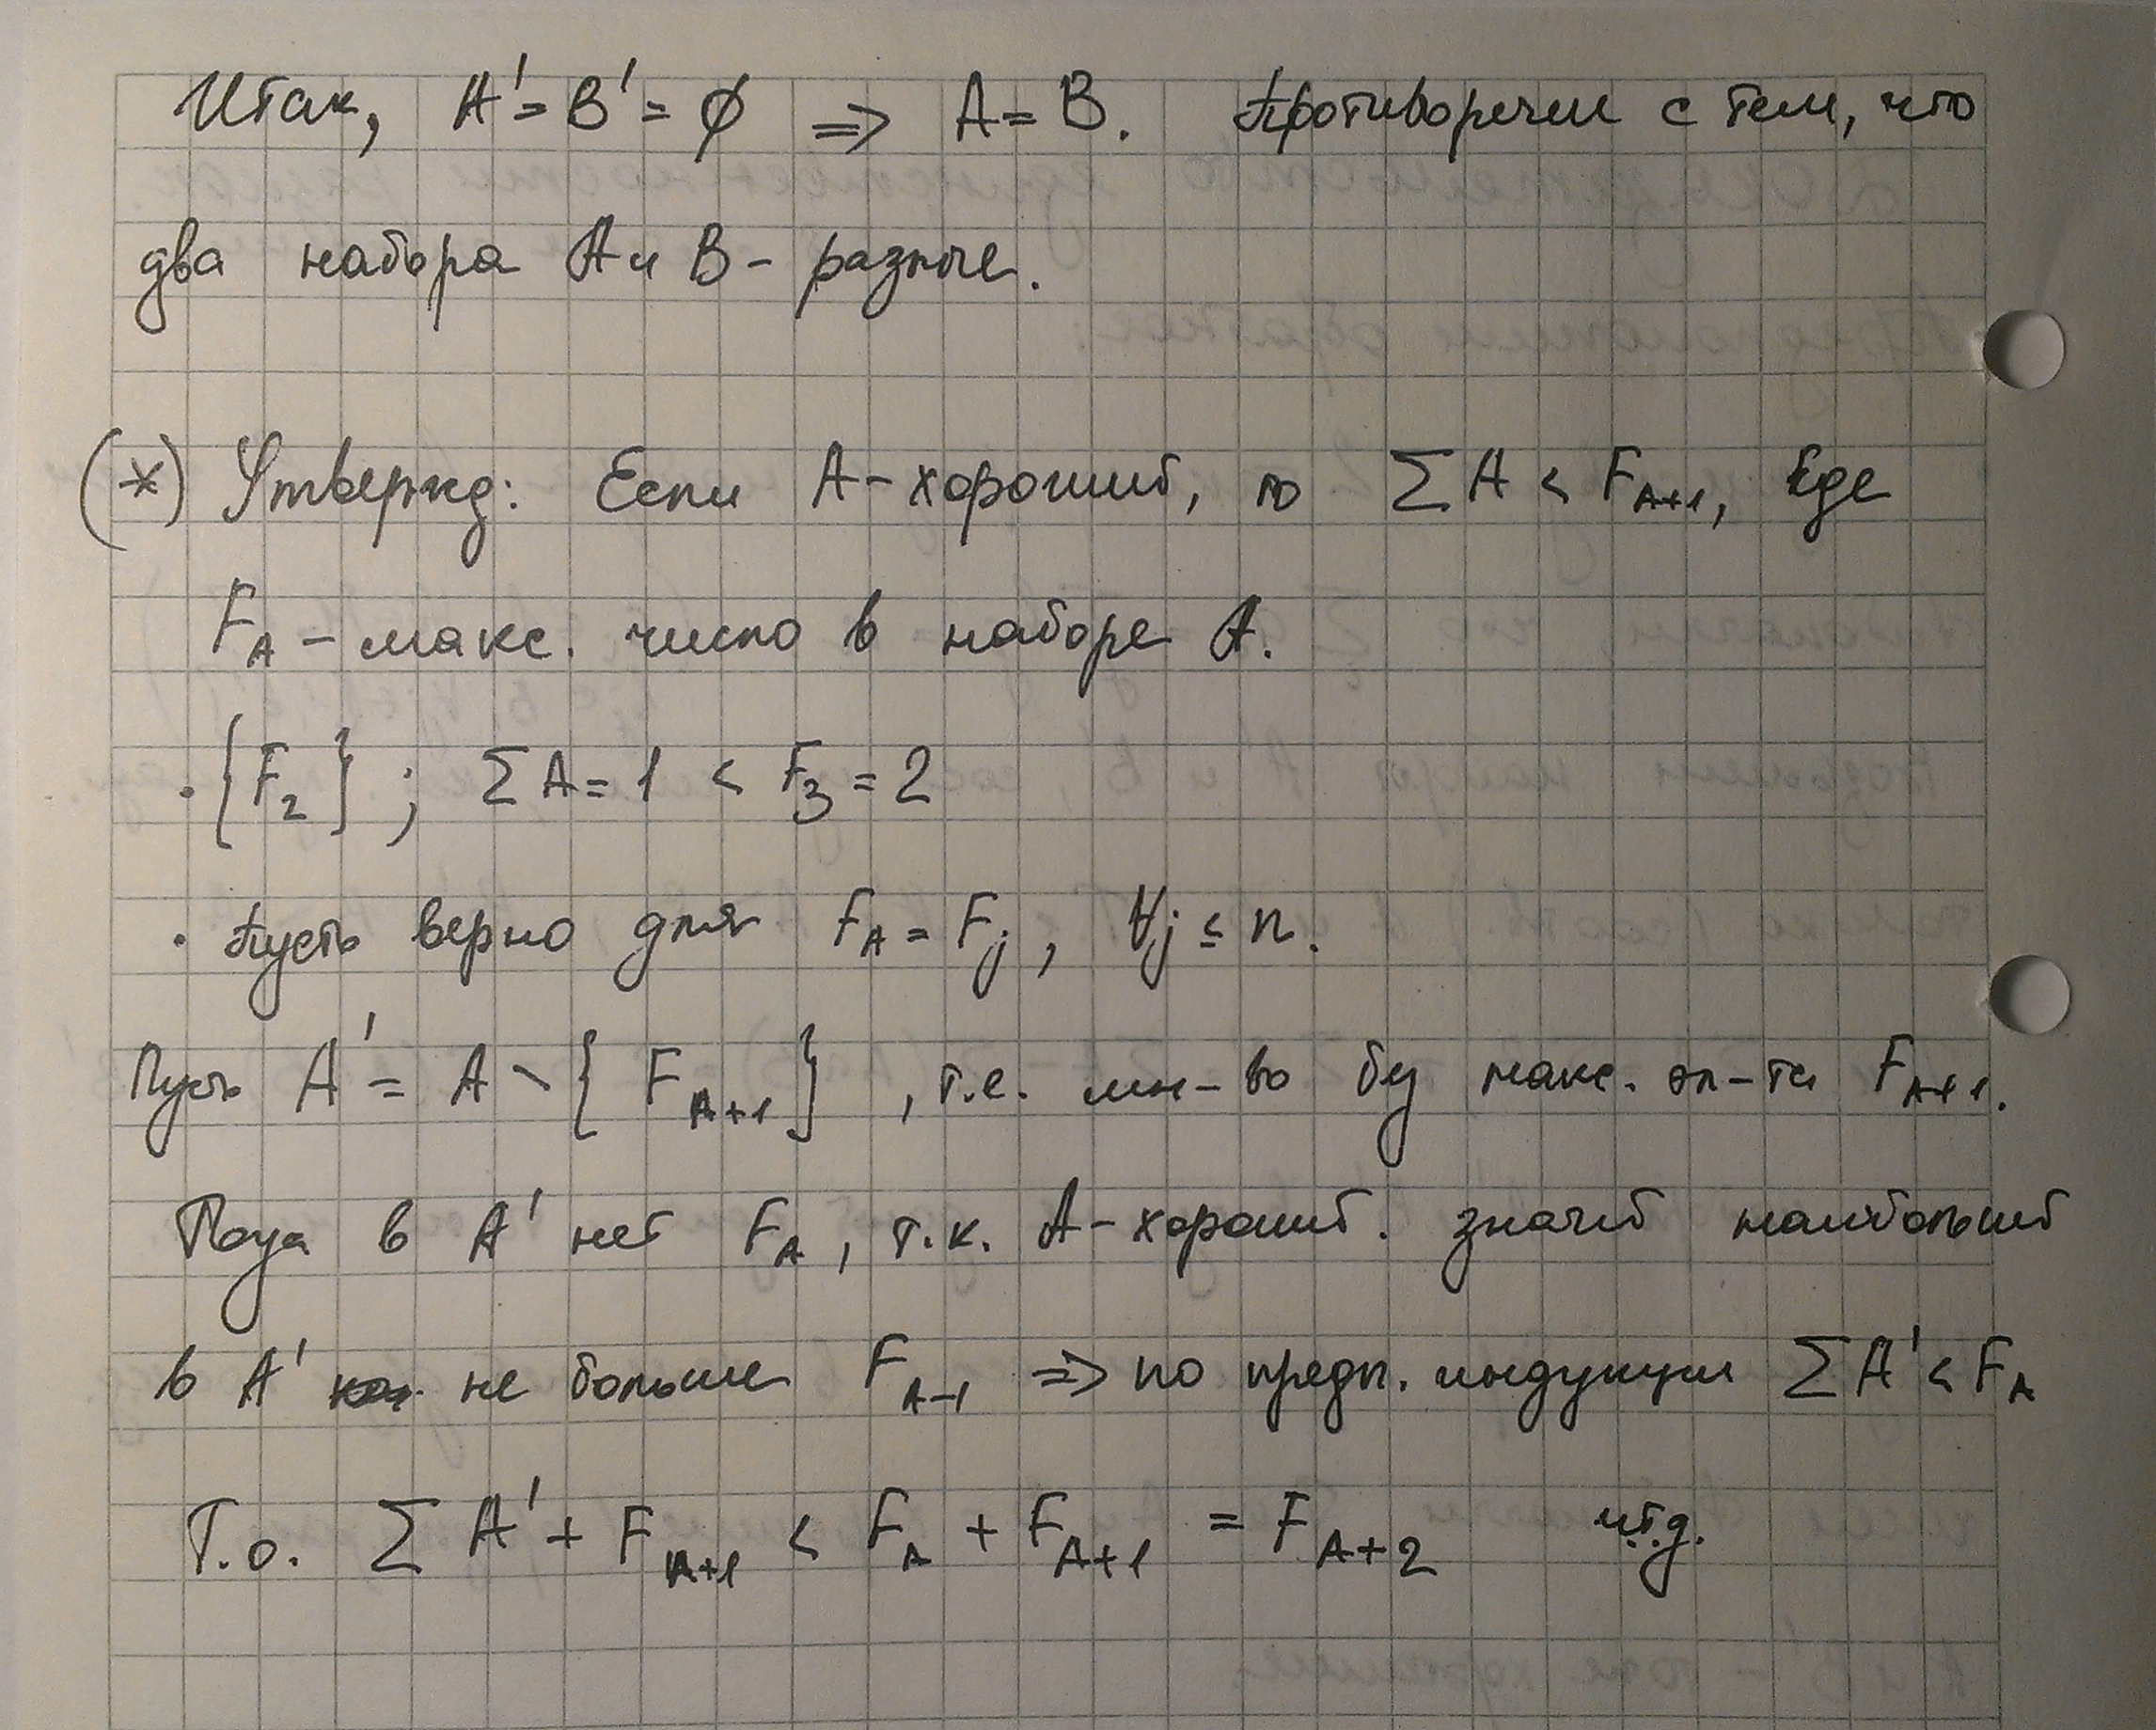 Итак, A' = B' = ∅ => A = B. Противоречие с тем, что
два набора A и B - разные.
(*) Утвержд: Если A - хороший, то ΣA < F_{A+1}, где
F_A - макс. число в наборе A.
· {F_2} ; ΣA = 1 < F_3 = 2
· Пусть верно для F_A = F_j, ∀j ≤ n.
Пусть A' = A \ {F_{A+1}}, т.е. мн-во без макс. эл-та F_{A+1}.
Тогда в A' нет F_A, т.к. A - хороший. значит наибольший
в A' не больше F_{A-1} => по предп. индукции ΣA' < F_A
Т.о. ΣA' + F_{A+1} < F_A + F_{A+1} = F_{A+2} ч.т.д.